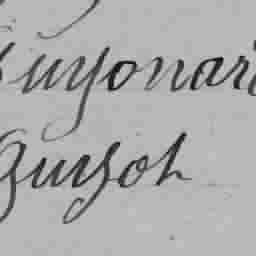 Guyonar
Guyot